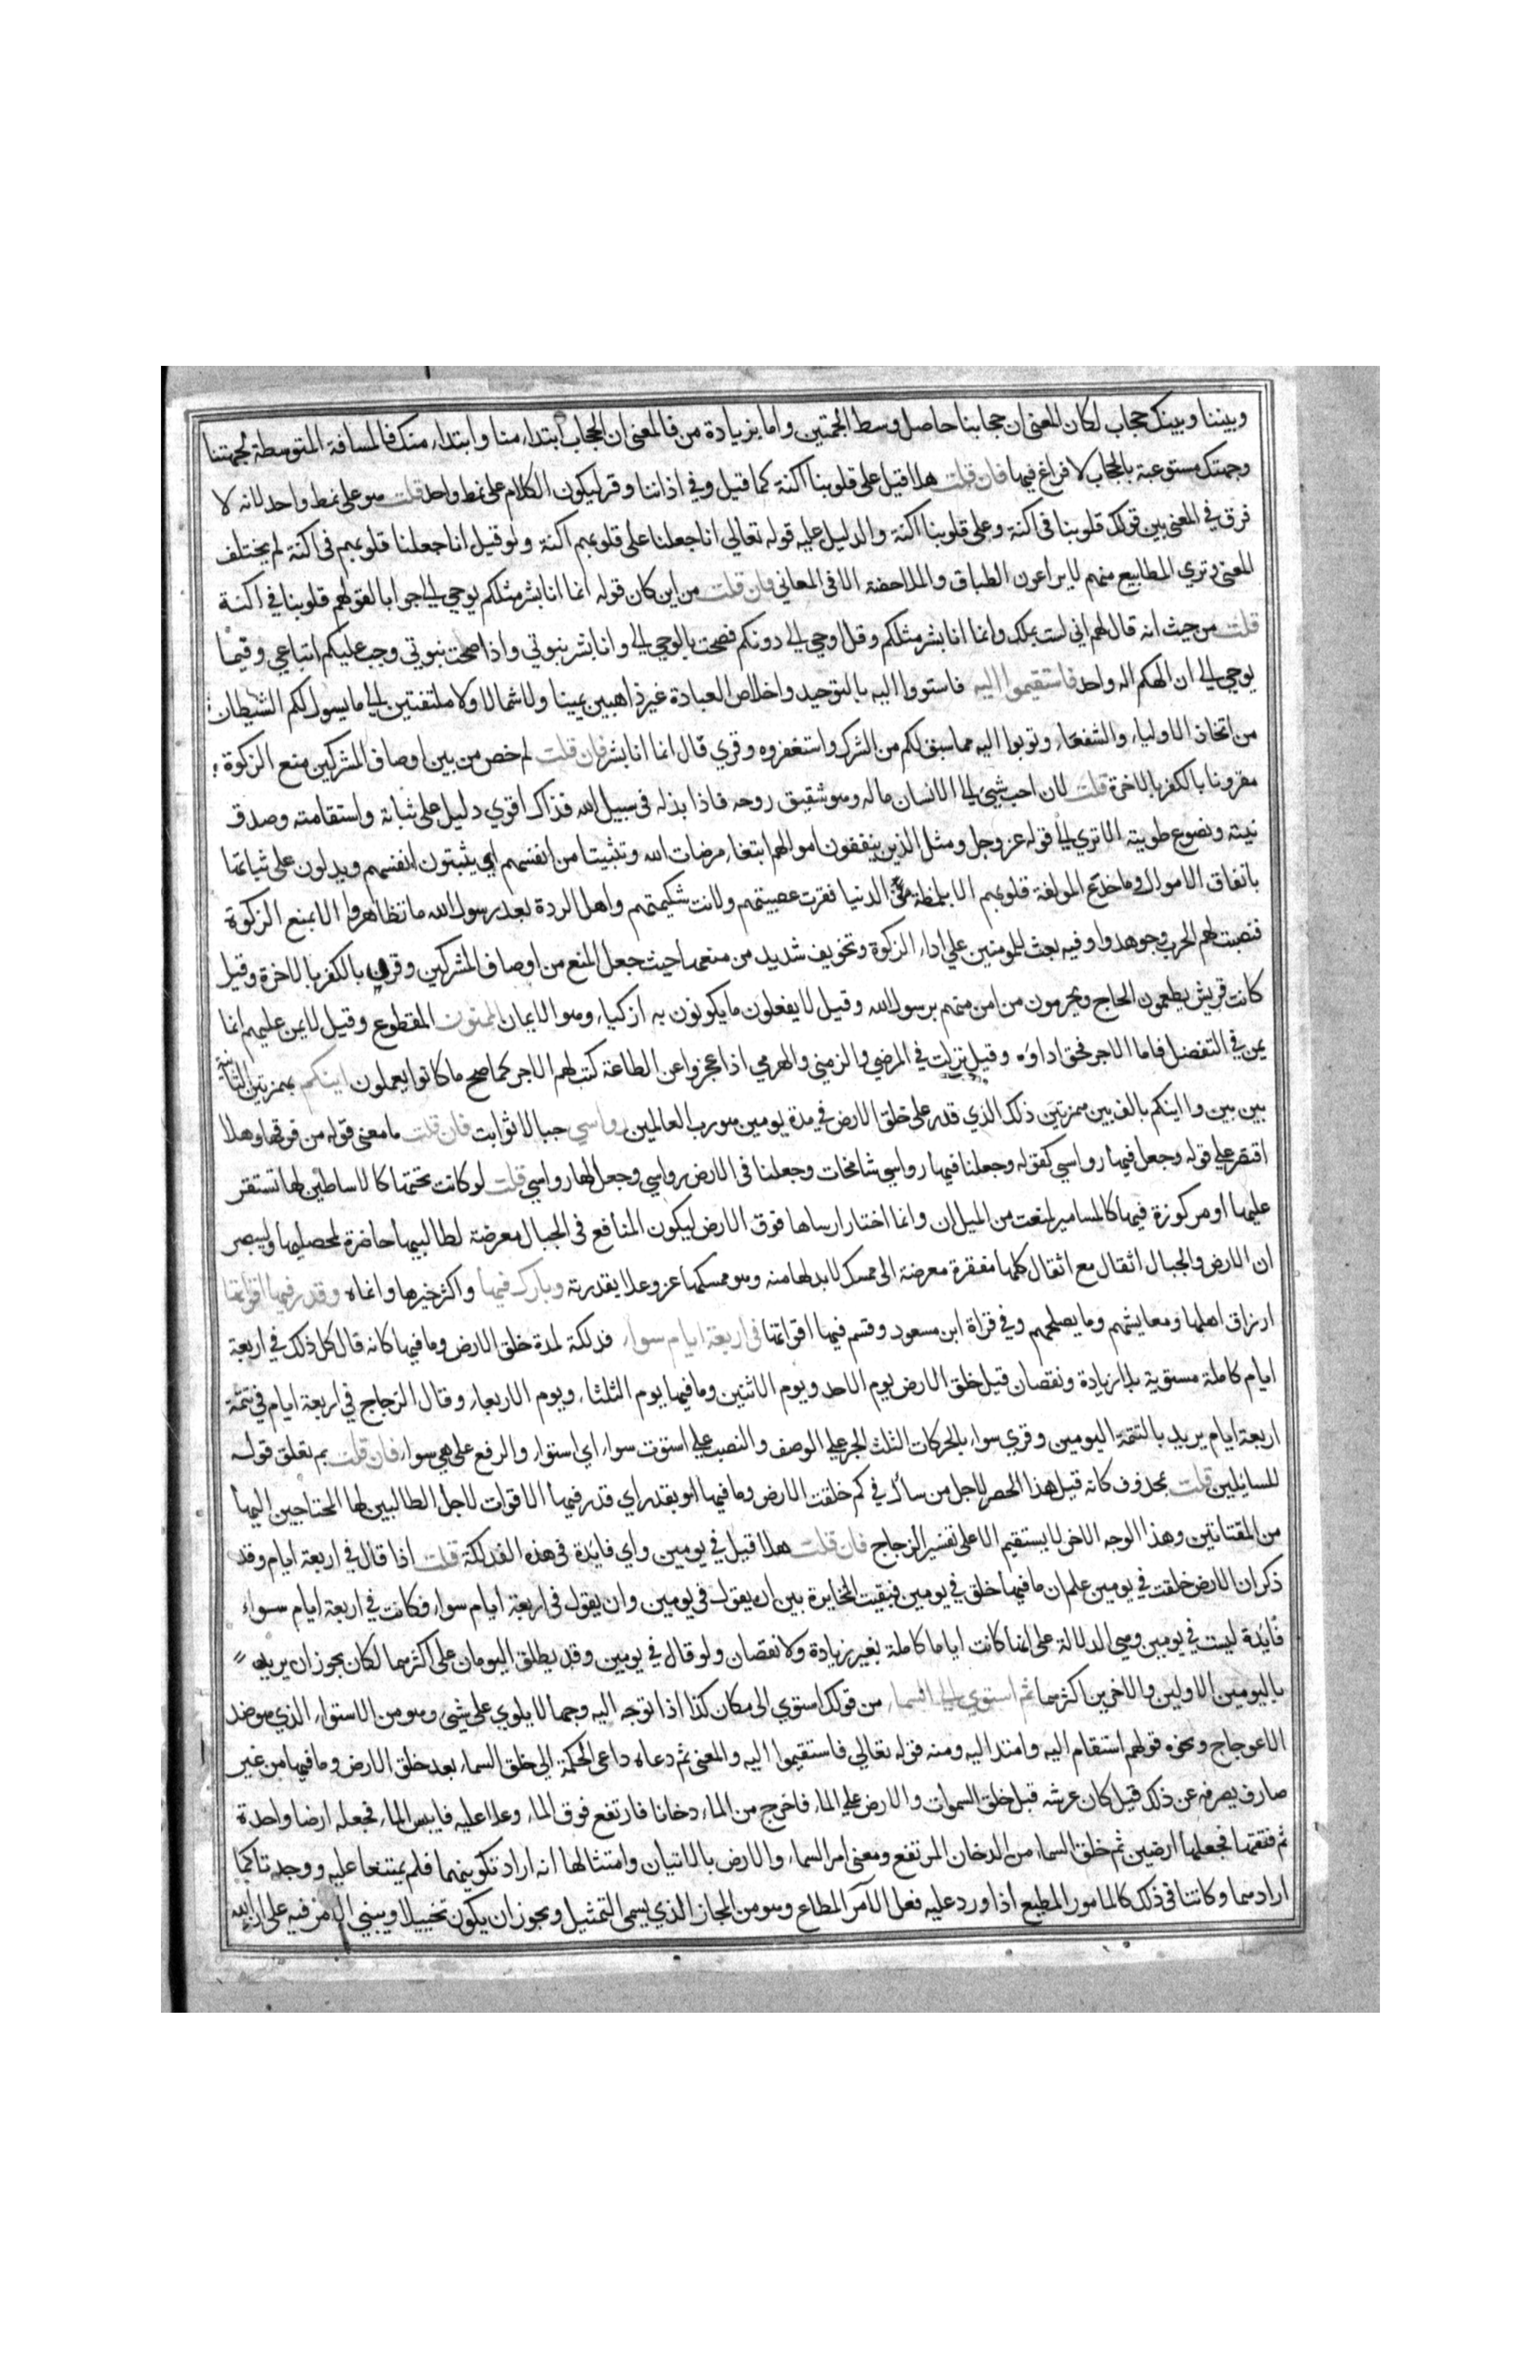 وبيننا وبينك حجاب لكان المعنى ان حجابنا حاصل وسط الجهتين واما بزيادة من فالمعنى ان الحجاب ابتداء منا وابتداء منك فالمسافة المتوسطة لجهتنا
وجهتك مستوعبة بالحجاب لا فراغ فيها فان قلت هلا قيل على قلوبنا اكنة كما قيل وفي اذاننا وقر ليكون الكلام على نمط واحد قلت هو على نمط واحد لانه لا
فرق في المعنى بين قولك قلوبنا في اكنة وعلى قلوبنا اكنة والدليل عليه قوله تعالي انا جعلنا على قلوبهم اكنة ولو قيل انا جعلنا قلوبهم في اكنة لم يختلف
المعنى وتري المطابيع منهم لا يراعون الطباق والملاحضة الا في المعاني فان قلت من اين كان قوله انما انا بشر مثلكم يوحي الي جوابا لقولهم قلوبنا في اكنة
قلت من حيث انه قال لهم اني لست بملك وانما انا بشر مثلكم وقد اوحي الي دونكم فصحت بالوحي الي وانا بشر نبوتي واذا صحت نبوتي وجب عليكم اتباعي وفيما
يوحي الي ان الهكم اله واحد فاستقيموا اليه فاستووا اليه بالتوحيد واخلاص العبادة غير ذاهبين يمينا ولا شمالا ولا ملتفتين الي ما يسول لكم الشيطان
من اتخاذ الاولياء والشفعاء وتوبوا اليه مما سبق لكم من الشرك واستغفروه وقري قال انما انا بشر فان قلت لم خص من بين اوصاف المشركين منع الزكوة
مقرونا بالكفر بالاخرة قلت لان احب شيئ الي الانسان ماله وهو شقيق روحه فاذا بذله في سبيل الله فذاك اقوي دليل على ثباته واستقامته وصدق
نيته ونصوع طويته الا تري الي قوله عز وجل ومثل الذين ينفقون اموالهم ابتغاء مرضات الله وتثبيتا من انفسهم اي يثبتون انفسهم ويدلون على ثباتها
بانفاق الاموال وما خدع المولفة قلوبهم الا بلمظة من الدنيا فقرت عصبيتهم ولانت شكيمتهم واهل الردة بعد رسول الله ما تظاهروا الا بمنع الزكوة
فنصبت لهم الحرب وجوهدوا وفيه بعث للمومنين علي اداء الزكوة وتخويف شديد من منعها حيث جعل المنع من اوصاف المشركين وقرن بالكفر بالاخرة وقيل
كانت قريش يطعمون الحاج ويحرمون من امن منهم برسول الله وقيل لا يفعلون ما يكونون به ازكياء وهو الايمان الممنون المقطوع وقيل لا يمن عليهم انما
يمن في التفضل فاما الاجر فحق اداؤه وقيل نزلت في المرضي والزمني والهرمي اذا عجزوا عن الطاعة كتب لهم الاجر كما صح ما كانوا يعملون اينكم بهمزتين الثانية
بين بين وااينكم بالف بين همزتين ذلك الذي قدر على خلق الارض في مدة يومين هو رب العالمين رواسي جبالا ثوابت فان قلت ما معنى قوله من فوقها وهلا
اقتصر علي قوله وجعل فيها رواسي كقوله وجعلنا فيها رواسي شامخات وجعلنا في الارض رواسي وجعل لها رواسي قلت لو كانت تحتها كالاساطين لها تستقر
عليها او مركوزة فيها كالمسامير لمنعت من الميلان وانما اختار ارساها فوق الارض ليكون المنافع في الجبال معرضة لطالبيها حاضرة لمحصليها وليبصر
ان الارض والجبال اثقال مع اثقال كلها مفتقرة معرضة الى ممسك لا بد لها منه وهو ممسكها عز وعلا بقدرته وبارك فيها واكثر خيرها وانماه وقدر فيها اقواتها
ارزاق اهلها ومعايشهم وما يصلحهم وفي قراة ابن مسعود وقسم فيها اقواتها في اربعة ايام سواء فذلكة لمدة خلق الارض وما فيها كانه قال كل ذلك في اربعة
ايام كاملة مستوية بلا زيادة ونقصان قيل خلق الارض يوم الاحد ويوم الاثنين وما فيها يوم الثلثاء ويوم الاربعاء وقال الزجاج في اربعة ايام في تتمة
اربعة ايام يريد بالتتمة اليومين وقري سواء بالحركات الثلث الجر علي الوصف والنصب علي استوت سواء اي استواء والرفع على هي سواء فان قلت بم تعلق قوله
للسايلين قلت بمحذوف كانه قيل هذا الحصر لاجل من سال في كم خلقت الارض وما فيها او بقدر اي قدر فيها الاقوات لاجل الطالبين لها المحتاجين اليها
من المقتاتين وهذا الوجه الاخر لا يستقيم الا على تفسير الزجاج فان قلت هلا قيل في يومين واي فايدة في هذه الفذلكة قلت اذا قال في اربعة ايام وقد
ذكر ان الارض خلقت في يومين علم ان ما فيها خلق في يومين فبقيت المخايرة بين ان يقول في يومين وان يقول في اربعة ايام سواء فكانت في اربعة ايام سواء
فايدة ليست في يومين وهي الدلالة على انها كانت اياما كاملة بغير زيادة ولا نقصان ولو قال في يومين وقد يطلق اليومان على اكثرهما لكان يجوز ان يريد
باليومين الاولين والاخرين اكثرهما ثم استوي الي السماء من قولك استوي الى مكان كذا اذا توجه اليه وجها لا يلوي على شيئ وهو من الاستواء الذي هو ضد
الاعوجاج ونحوه قولهم استقام اليه وامتد اليه ومنه قوله تعالي فاستقيموا اليه والمعنى ثم دعاه داعي الحكمة الي خلق السماء بعد خلق الارض وما فيها من غير
صارف يصرفه عن ذلك قيل كان عرشه قبل خلق السموات والارض علي الماء فاخرج من الماء دخانا فارتفع فوق الماء وعلا عليه فايبس الماء فجعله ارضا واحدة
ثم فتقها فجعلها ارضين ثم خلق السماء من الدخان المرتفع ومعنى امر السماء والارض بالاتيان وامتثالها انه اراد تكوينهما فلم يمتنعا عليه ووجدتا كما
ارادهما وكانتا في ذلك كالمامور المطيع اذا ورد عليه فعل الآمر المطاع وهو من المجاز الذي يسمى التمثيل ويجوز ان يكون تخييلا ويبني الامر فيه على ان الله